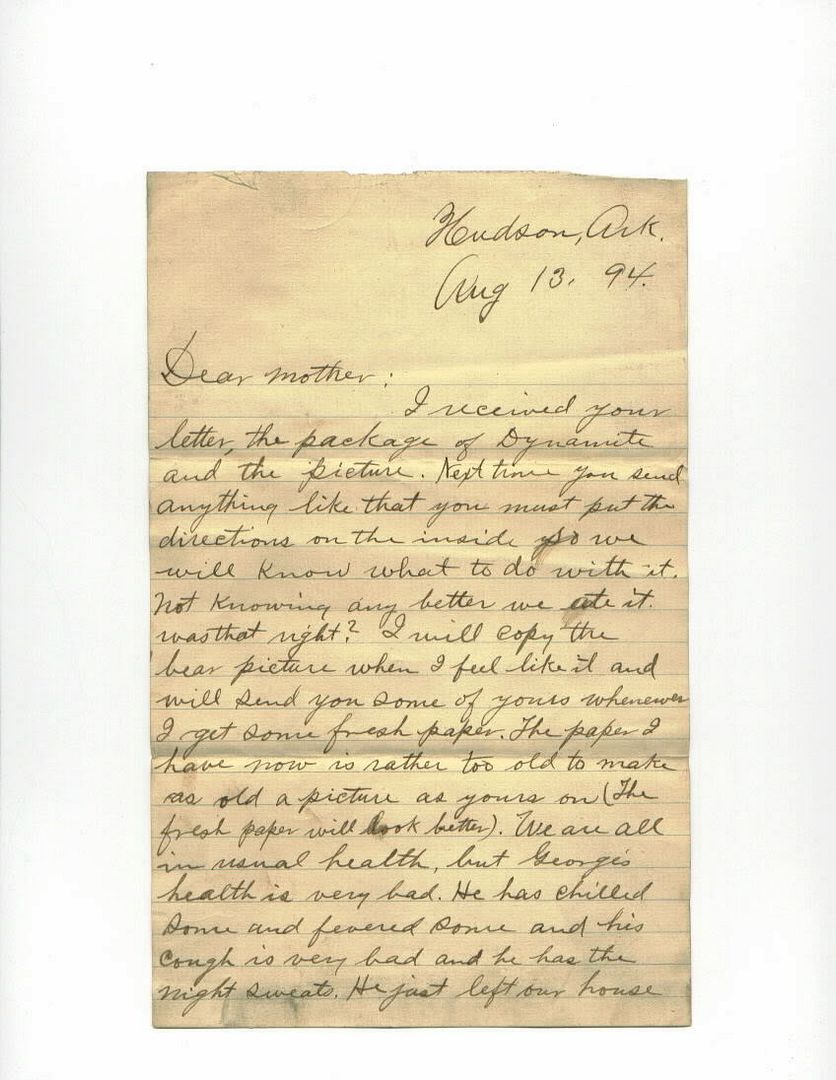 Hudson, Ark.
Aug 13. 94.
Dear mother:
I received your
letter, the package of Dynamite
and the picture. Next time you send
anything like that you must put the
directions on the inside so we
will know what to do with it.
Not knowing any better we ate it.
was that right? I will copy the
bear picture when I feel like it and
will send you some of yours whenever
I get some fresh paper. The paper I
have now is rather too old to make
as old a picture as yours on (The
fresh paper will look better). We are all
in usual health, but Georgis
health is very bad. He has chilled
some and fevered some and his
cough is very bad and he has the
night sweats. He just left our house